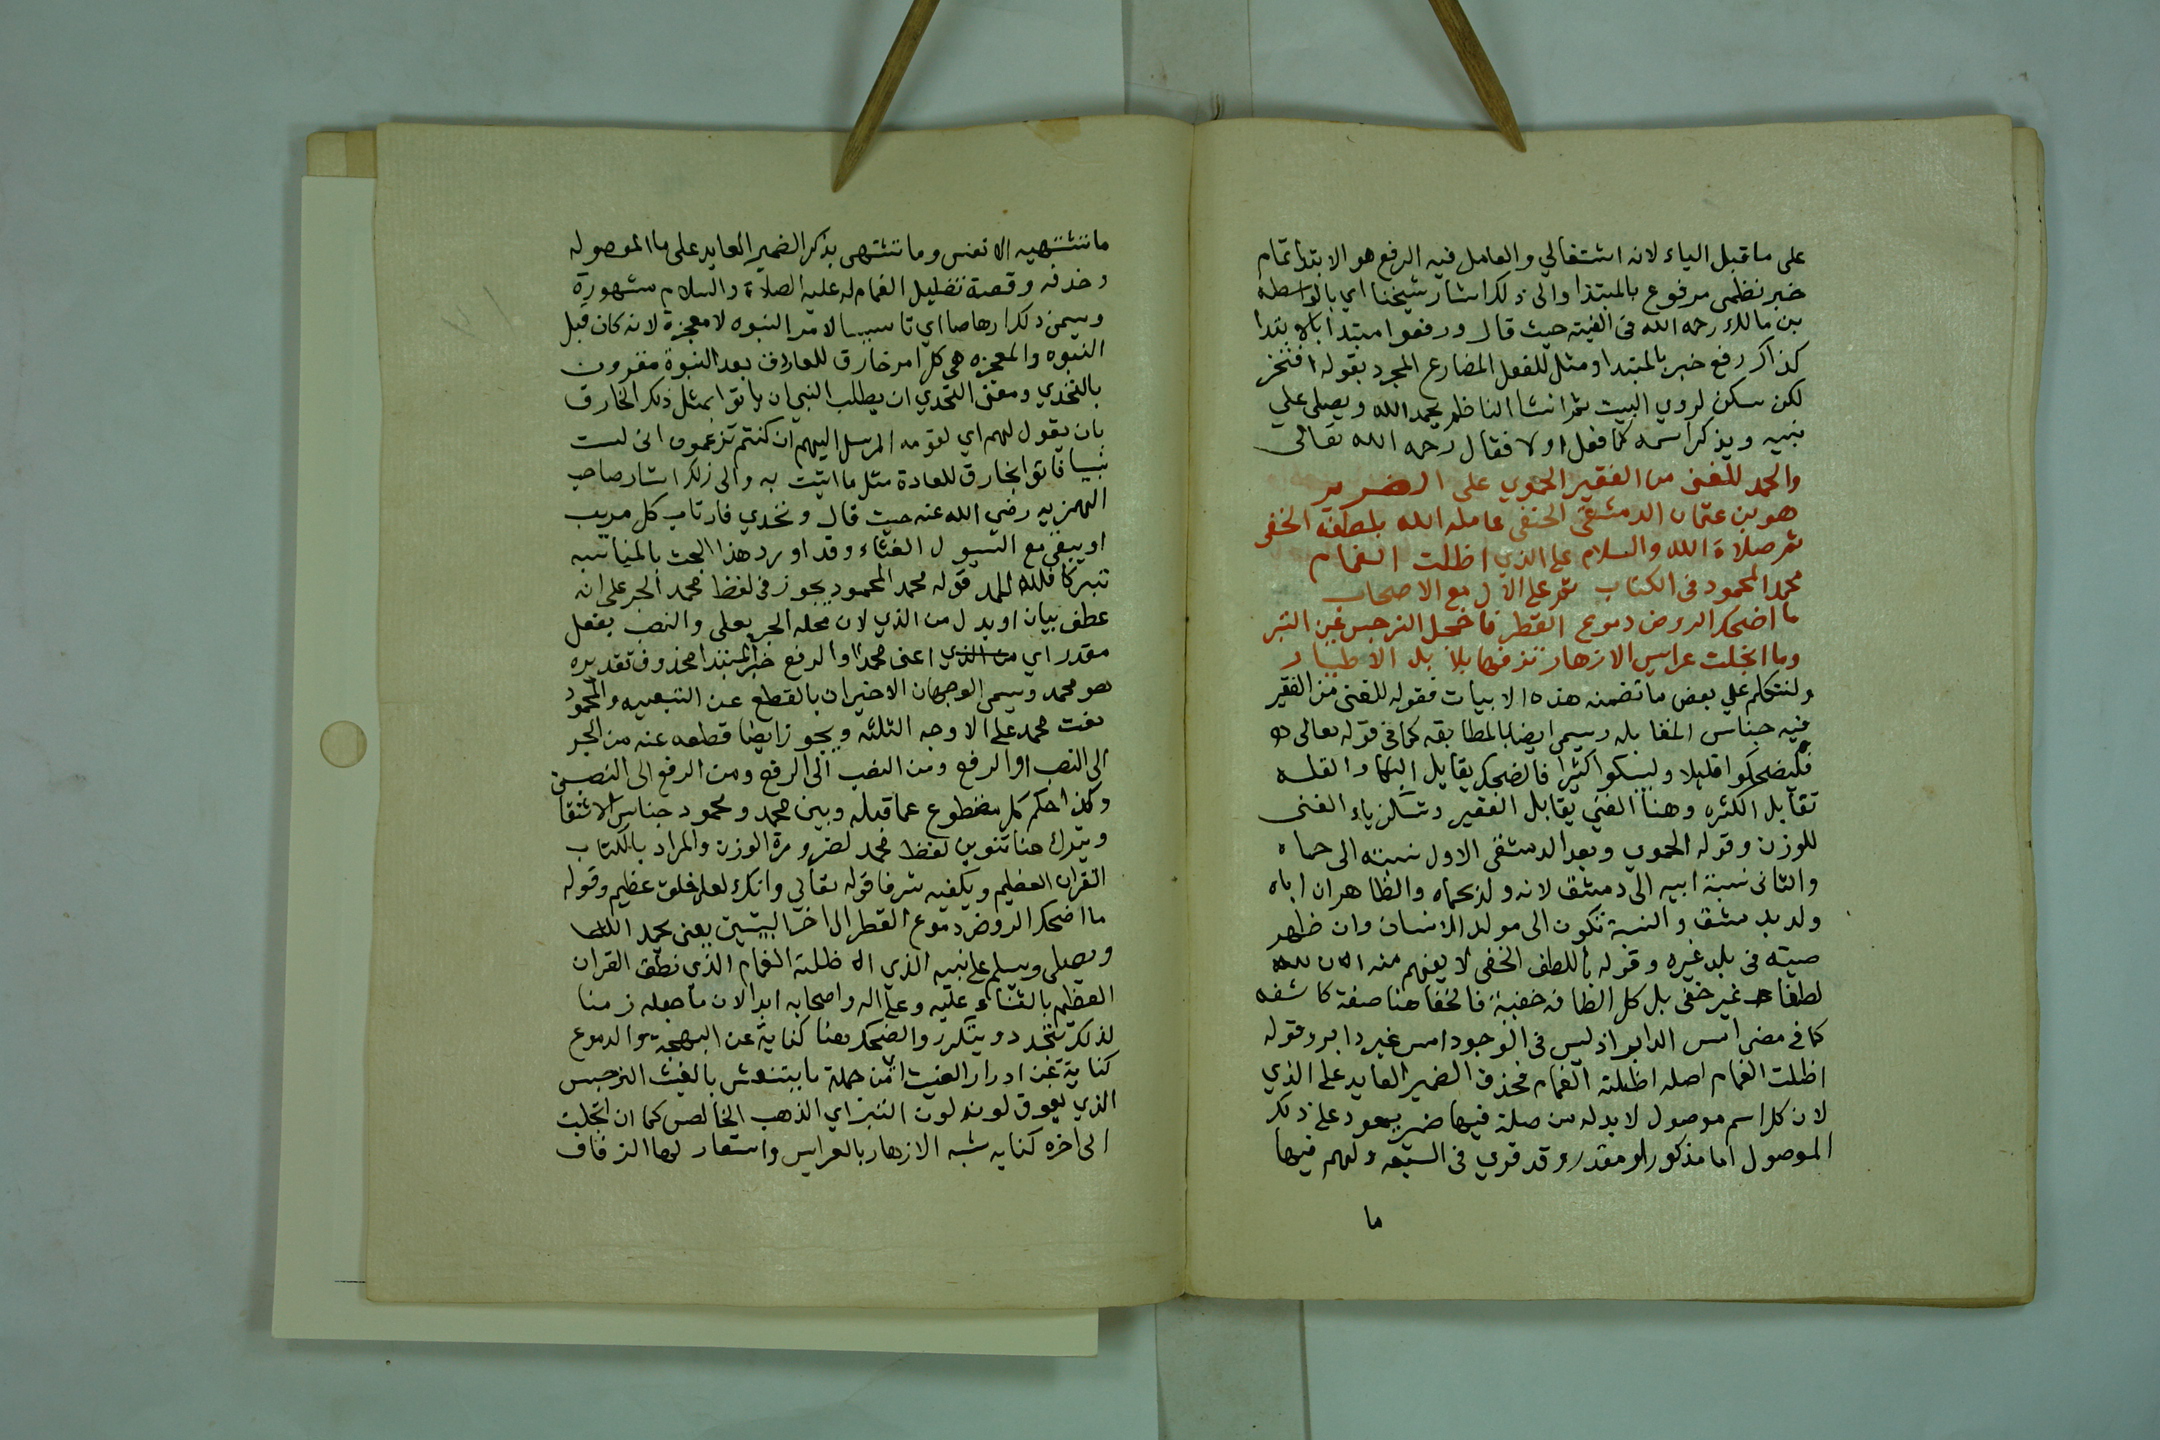 على ماقبل الياء لانه اشتغالي والعامل فيه الرفع هو الابتدا تمام
خبر نظمى مرفوع بالمبتدا والى ذلك اشار شيخنا اي بالواسطه
بن مالك رحمه الله فى الفيته حيث قال ورفعوا مبتدا بالابتدا
كذاك رفع خبر بالمبتدا ومثل للفعل المضارع المجرد بقوله افتخر
لكن سكن لروي البيت ثم انشا الناظم يحمد الله ويصلى على
نبيه ويذكر اسمه كما فعل اولا فقال رحمه الله تعالى
والحمد للغنى من الفقير الحموي على الضرير
هو بن عثمان الدمشقى الحنفى عامله الله بلطفه الخفى
ثم صلاة الله والسلام على الذي اظلت الغمام
محمد المحمود فى الكتاب ثم على الآل مع الاصحاب
ما اضحك الروض دموع القطر فاخجل النرجس عين التبر
وما انجلت عرايس الازهار تزفها بلابل الاطيار
ولنتكلم على بعض ما تضمنه هذه الابيات فقوله للغنى من الفقير
فيه جناس المقابله ويسمى ايضا بالمطابقه كما فى قوله تعالى
فليضحكوا قليلا وليبكوا كثيرا فالضحك يقابل البكا والقله
تقابل الكثره وهنا الغني يقابل الفقير وتسكن ياء الغنى
للوزن وقوله الحموي وبعد الدمشقى الاول نسبته الى حماه
والثانى نسبة ابيه الى دمشق لانه ولد بحماه والظاهر ان اباه
ولد بدمشق والنسبة تكون الى مولد الانسان وان ظهر
صيته فى بلد غيره وقوله باللطف الخفى لا يفهم منه ان لله
لطفا غير خفى بل كل الطافه خفية فالخفا هنا صفة كاشفه
كما فى مضى امس الدابر اذ ليس فى الوجود امس غير دابر وقوله
اظلت الغمام اصله اظلته الغمام فحذف الضمير العايد على الذي
لان كل اسم موصول لا بد له من صلة فيها ضمير يعود على ذلك
الموصول اما مذكور او مقدر وقد قري فى السبعه ولهم فيها
ما
ما تشتهيه الانفس وما تشتهى بذكر الضمير العايد على ما الموصوله
وحذفه وقصة تظليل الغمام له عليه الصلاة والسلام مشهورة
وسمى ذلك ارهاصا اي تاسيسا لامر النبوه لا معجزة لانه كان قبل
النبوه والمعجزه هى كل امر خارق للعادة بعد النبوة مقرون
بالتحدي ومعنى التحدي ان يطلب النبي ان ياتوا بمثل ذلك الخارق
بان يقول لهم اي لقومه المرسل اليهم ان كنتم تزعمون انى لست
نبيا فاتوا بخارق للعادة مثل ما اتيت به والى ذلك اشار صاحب
الهمزيه رضي الله عنه حيث قال وتحدي فارتاب كل مريب
او يبقى مع السيول الغثاء وقد اورد هذا البحث بالمناسبه
تبركا فلله الحمد قوله محمد المحمود يجوز فى لفظ محمد الجر على انه
عطف بيان او بدل من الذي لان محله الجر بعلى والنصب بفعل
مقدر اي من الذي اعنى محمدا او الرفع خبر لمبتدا محذوف تقديره
هو محمد وسمى الوجهان الاخيران بالقطع عن التبعيه والمحمود
نعت محمد على الاوجه الثلثه ويجوز ايضا قطعه عنه من الجر
الى النصب او الرفع ومن النصب الى الرفع ومن الرفع الى النصب
وكذا حكم كل مقطوع عما قبله وبين محمد ومحمود جناس الاشتقاق
ويترك هنا تنوين لفظ محمد لضرورة الوزن والمراد بالكتاب
القران العظيم ويكفيه شرفا قوله تعالى وانك لعلى خلق عظيم وقوله
ما اضحك الروض دموع القطر الى اخر البيتين يعنى يحمد الله
ويصلى ويسلم على نبيه الذي اظلته الغمام الذي نطق القران
العظيم بالثناء عليه وعلى اله واصحابه ابدا لان ما جعله زمنا
لذلك يتجدد ويتكرر والضحك هنا كناية عن البهجة والدموع
كناية عن ادرار الغيث من جملة ما ينتعش بالغيث النرجس
الذي يفوق لونه لون التبر اي الذهب الخالص كما ان انجلت
الى اخره كنايه شبه الازهار بالعرايس واستعار لها الزفاف